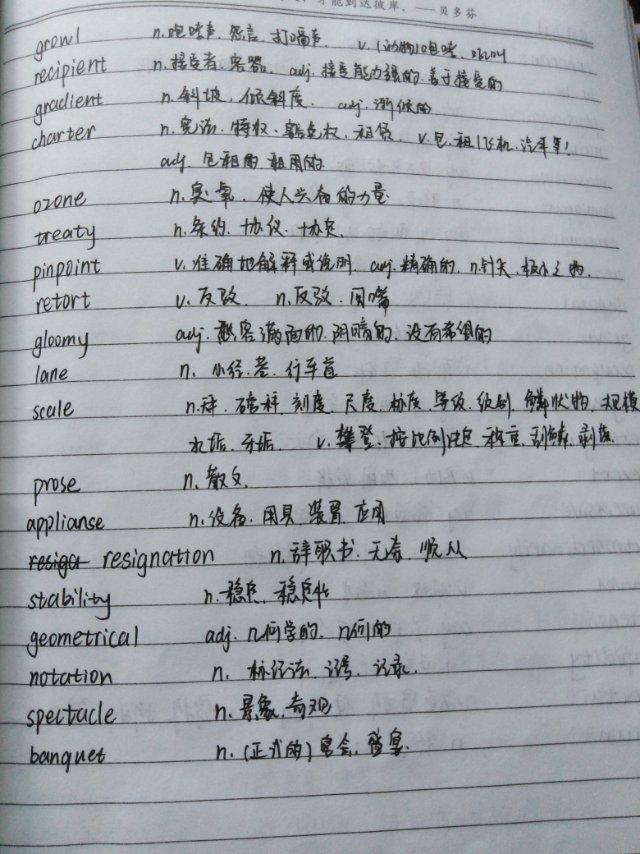 才能到达彼岸。——贝多芬
growl n.咆哮声、怨言、打嗝声 v.(动物)咆哮、
recipient n.接受者、容器、adj.接受能力强的、善于接受的
gradient n.斜坡、倾斜度、adj.渐倾的
charter n.宪法、特权、豁免权、租赁、v.包、租(飞机、汽车等)
adj.包租的、租用的
ozone n.臭氧、使人兴奋的力量
treaty n.条约、协议、协定、
pinpoint v.准确地解释或说明、adj.精确的、n.针尖、极小之物、
retort v.反驳、n.反驳、回嘴
gloomy adj.愁容满面的、阴暗的、没有希望的
lane n.小径、巷、行车道
scale n.秤、磅秤、刻度、尺度、标度、等级、级别、鳞状物、规模
水垢、牙垢、v.攀登、按比例、称重、刮鳞、剥落、
prose n.散文、
applianse n.设备、用具、装置、应用
resignation n.辞职书、无奈、顺从
stability n.稳定、稳定性
geometrical adj.几何学的、几何的
notation n.标记法、记号、记录、
spectacle n.景象、奇观
banquet n.(正式的)宴会、盛宴、